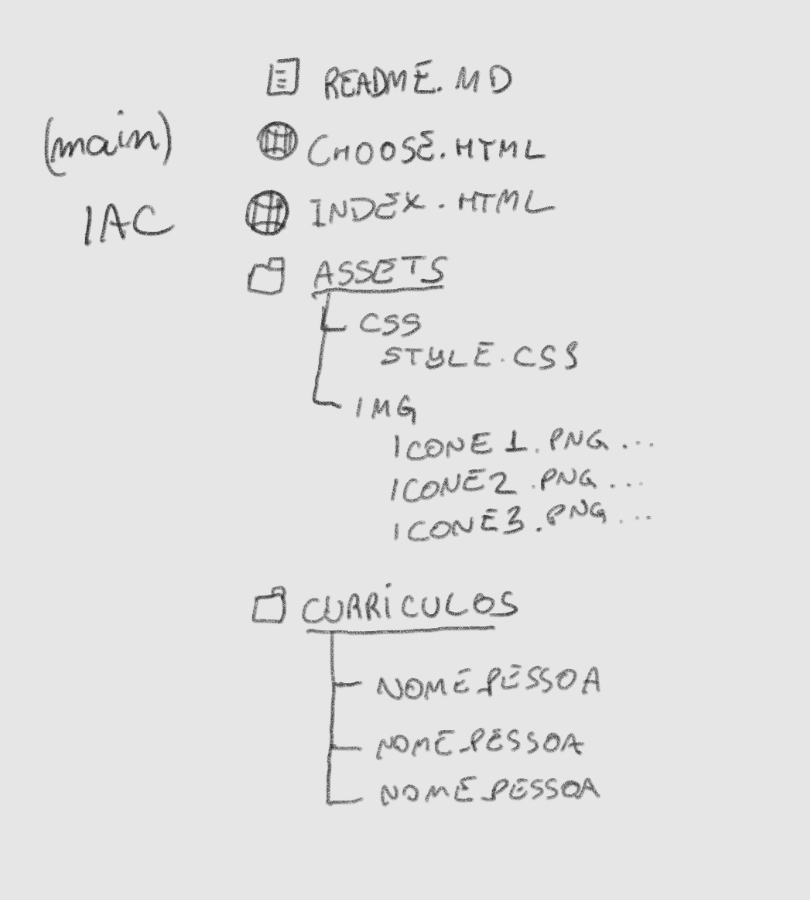 README.MD
(main)
CHOOSE.HTML
IAC
INDEX.HTML
ASSETS
CSS
STYLE.CSS
IMG
ICONE1.PNG...
ICONE2.PNG...
ICONE3.PNG...
CURRICULOS
NOME_PESSOA
NOME_PESSOA
NOME_PESSOA